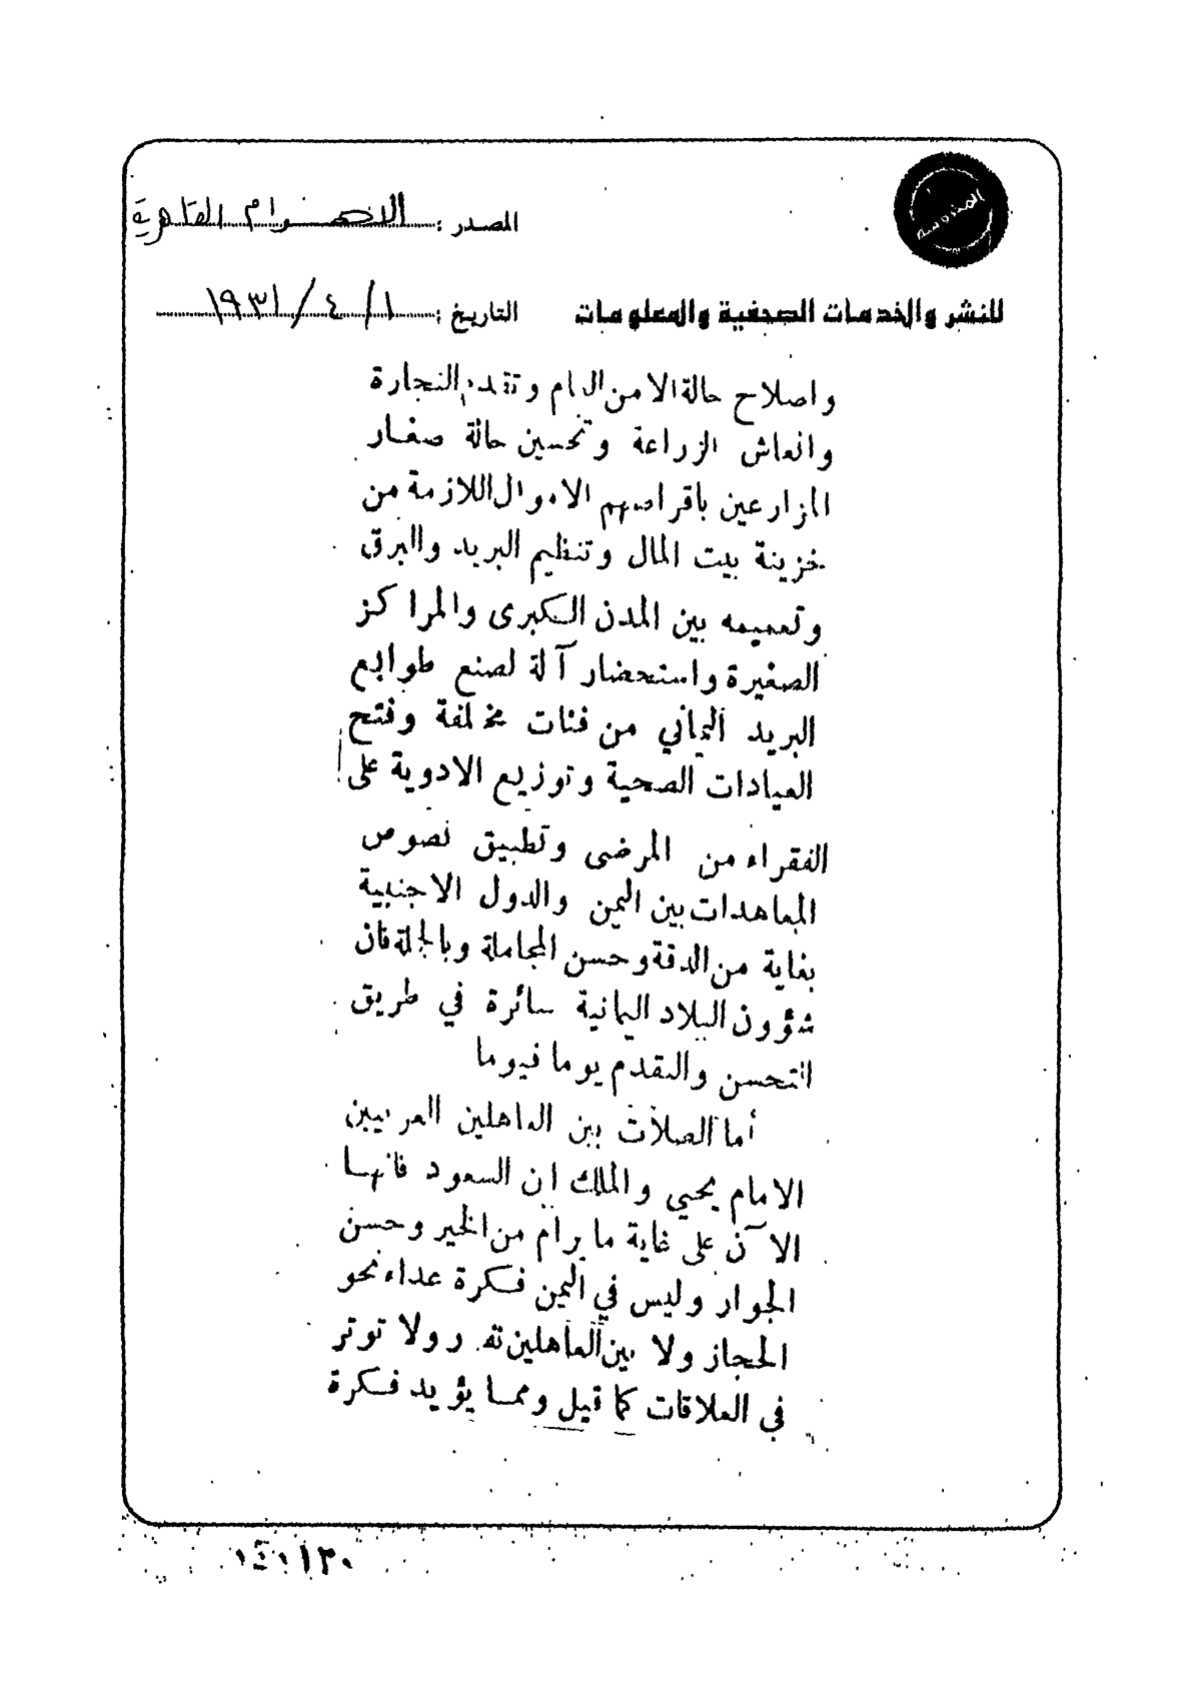 المحروسة
المصدر : الاهرام القاهرية
للنشر والخدمات الصحفية والمعلومات
التاريخ : ١ / ٤ / ١٩٣١
واصلاح حالة الامن العام وتقدم التجارة
وانعاش الزراعة وتحسين حالة صغار
المزارعين باقراضهم الاموال اللازمة من
خزينة بيت المال وتنظيم البريد والبرق
وتعميمه بين المدن الكبرى والمراكز
الصغيرة واستحضار آلة لصنع طوابع
البريد اليماني من فئات مختلفة وفتح
العيادات الصحية وتوزيع الادوية على
الفقراء من المرضى وتطبيق نصوص
المعاهدات بين اليمن والدول الاجنبية
بغاية من الدقة وحسن المجاملة وبالجملة فان
شؤون البلاد اليمانية سائرة في طريق
التحسن والتقدم يوما فيوما
أما الصلات بين العاهلين العربيين
الامام يحيي والملك ابن السعود فانها
الآن على غاية ما يرام من الخير وحسن
الجوار وليس في اليمن فكرة عداء نحو
الحجاز ولا بين العاهلين ولا توتر
في العلاقات كما قيل ومما يؤيد فكرة